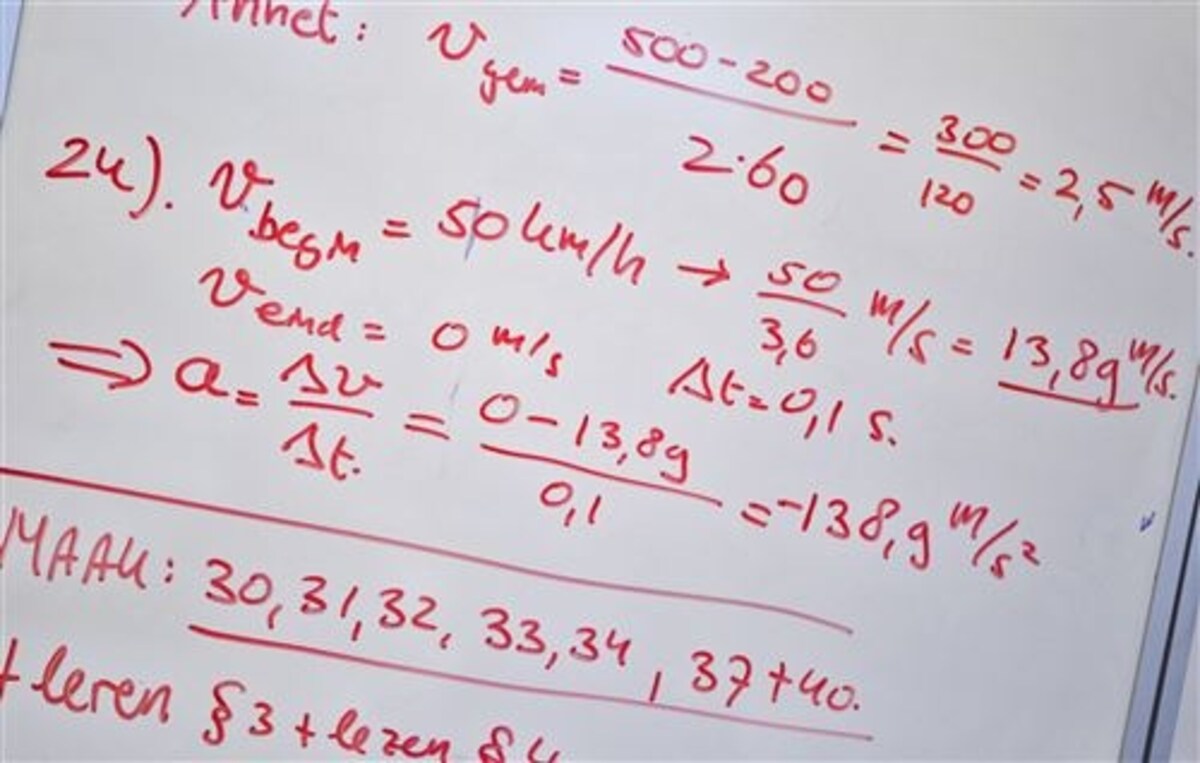 Annet: v gem = 500 - 200 / 2·60 = 300 / 120 = 2,5 m/s.
24). v begin = 50 km/h → 50 / 3,6 m/s = 13,89 m/s.
v eind = 0 m/s Δt = 0,1 s.
⇒ a = Δv / Δt. = 0 - 13,89 / 0,1 = -138,9 m/s²
MAAK: 30, 31, 32, 33, 34, 37 + 40.
+ leren § 3 + lezen § 4